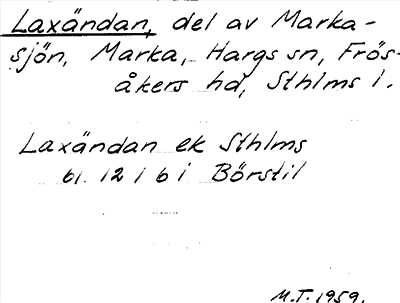 Laxändan, del av Marka-
sjön, Marka, Hargs sn, Frös-
åkers hd, Sthlms l.
Laxändan ek Sthlms
bl. 12 i 6 i Börstil
M.T. 1959.